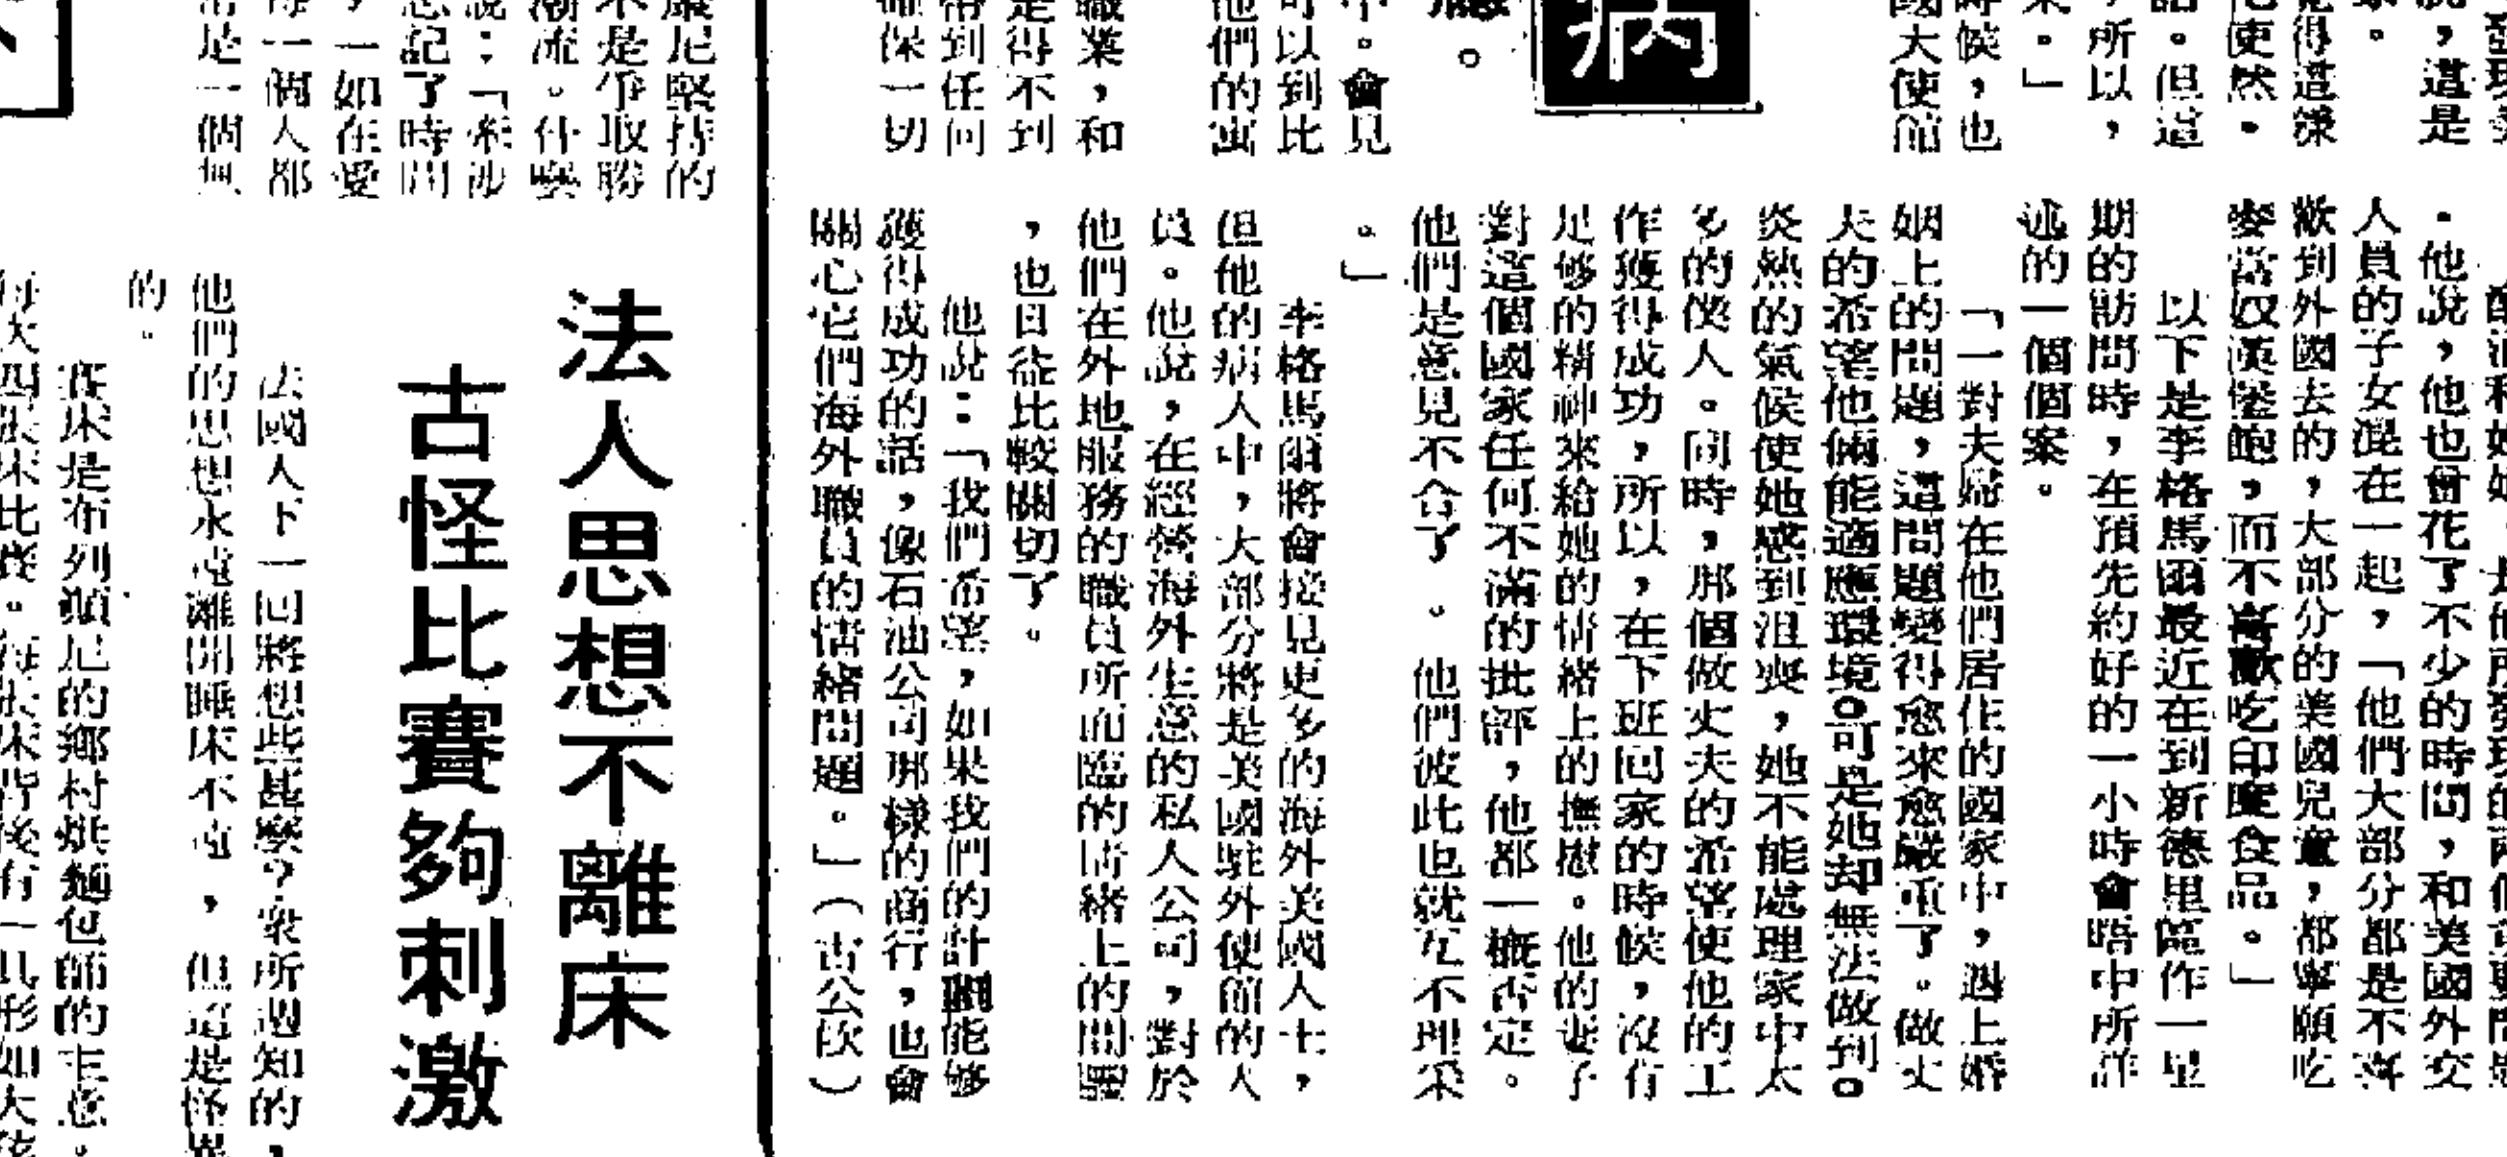 ，這是
得這樣
使然。
。但這
，所以，
。」
時候，也
國大使館
病
應。
中。會見
可以到比
他們的寓
職業，和
是得不到
帶到任何
保一切
。他說，他也曾花了不少的時間，和美國外交
人員的子女混在一起，「他們大部分都是不喜
歡到外國去的，大部分的美國兒童，都寧願吃
麥當奴漢堡飽，而不喜歡吃印度食品。」
以下是李格馬爾最近在到新德里區作一星
期的訪問時，在預先約好的一小時會晤中所詳
述的一個個案。
「一對夫婦在他們居住的國家中，遇上婚
姻上的問題，這問題變得愈來愈嚴重了。做丈
夫的希望他倆能適應環境。可是她却無法做到。
炎熱的氣候使她感到沮喪，她不能處理家中太
多的僕人。同時，那個做丈夫的希望使他的工
作獲得成功，所以，在下班回家的時候，沒有
足够的精神來給她的情緒上的撫慰。他的妻子
對這個國家任何不滿的批評，他都一概否定。
他們是意見不合了。他們彼此也就互不理采
。」
李格馬爾將會接見更多的海外美國人士，
但他的病人中，大部分將是美國駐外使節的人
員。他說，在經營海外生意的私人公司，對於
他們在外地服務的職員所面臨的情緒上的問題
，也日益比較關切了。
他說：「我們希望，如果我們的計劃能够
獲得成功的話，像石油公司那樣的商行，也會
關心它們海外職員的情緒問題。」（古公佽）
康尼堅持的
不是爭取勝
潮流。什麼
說：「乘涉
忘記了時間
，一如在愛
每一個人都
常是一個無
法人思想不離床
古怪比賽夠刺激
法國人下一回將想些甚麼？衆所週知的，
他們的思想永遠離開睡床不遠，但這是怪異
的。
賽床是布列顛尼的鄉村烘麵包師的主意。
每次四張床比賽。每張床背後有一具形如大